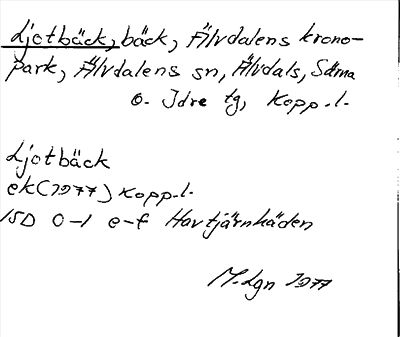 Ljotbäck, bäck, Älvdalens krono-
park, Älvdalens sn, Älvdals, Särna
o. Idre tg, Kopp.l.
Ljotbäck
ek (1977) Kopp.l.
15D 0-1 e-f Havtjärnhäden
M.Lgn 1977